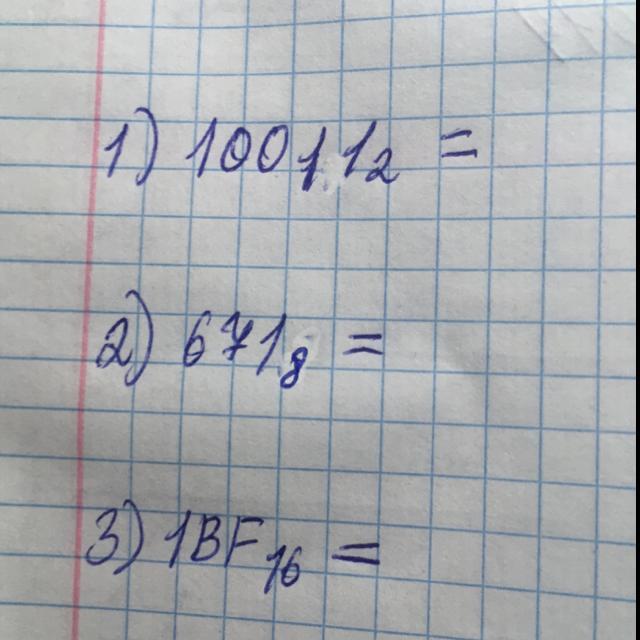 1) 10011₂ =
2) 671₈ =
3) 1BF₁₆ =